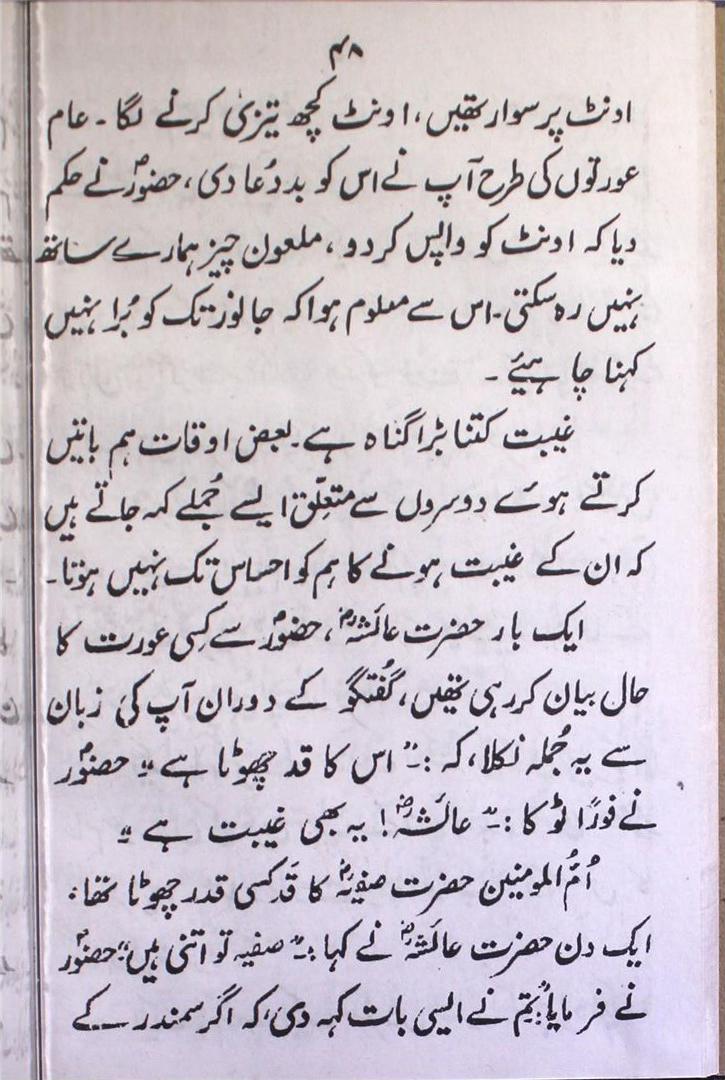 ۴۸
اونٹ پر سوار تھیں، اونٹ کچھ تیزی کرنے لگا۔ عام
عورتوں کی طرح آپ نے اس کو بددُعا دی، حضورؐ نے حکم
دیا کہ اونٹ کو واپس کر دو، ملعون چیز ہمارے ساتھ
نہیں رہ سکتی۔ اس سے معلوم ہوا کہ جانور تک کو بُرا نہیں
کہنا چاہئیے۔
غیبت کتنا بڑا گناہ ہے۔ بعض اوقات ہم باتیں
کرتے ہوئے دوسروں سے متعلّق ایسے جُملے کہہ جاتے ہیں
کہ ان کے غیبت ہونے کا ہم کو احساس تک نہیں ہوتا۔
ایک بار حضرت عائشہؓ، حضورؐ سے کِسی عورت کا
حال بیان کر رہی تھیں، گفُتگو کے دوران آپ کی زبان
سے یہ جُملہ نکلا، کہ :۔ "اس کا قد چھوٹا ہے" حضورؐ
نے فورًا ٹوکا :۔ "عائشہؓ! یہ بھی غیبت ہے"
اُمُّ المومنین حضرت صفیہؓ کا قَد کسی قدر چھوٹا تھا،
ایک دن حضرت عائشہؓ نے کہا :۔ "صفیہ تو اتنی ہیں" حضورؐ
نے فرمایا: "تم نے ایسی بات کہہ دی، کہ اگر سمندر کے